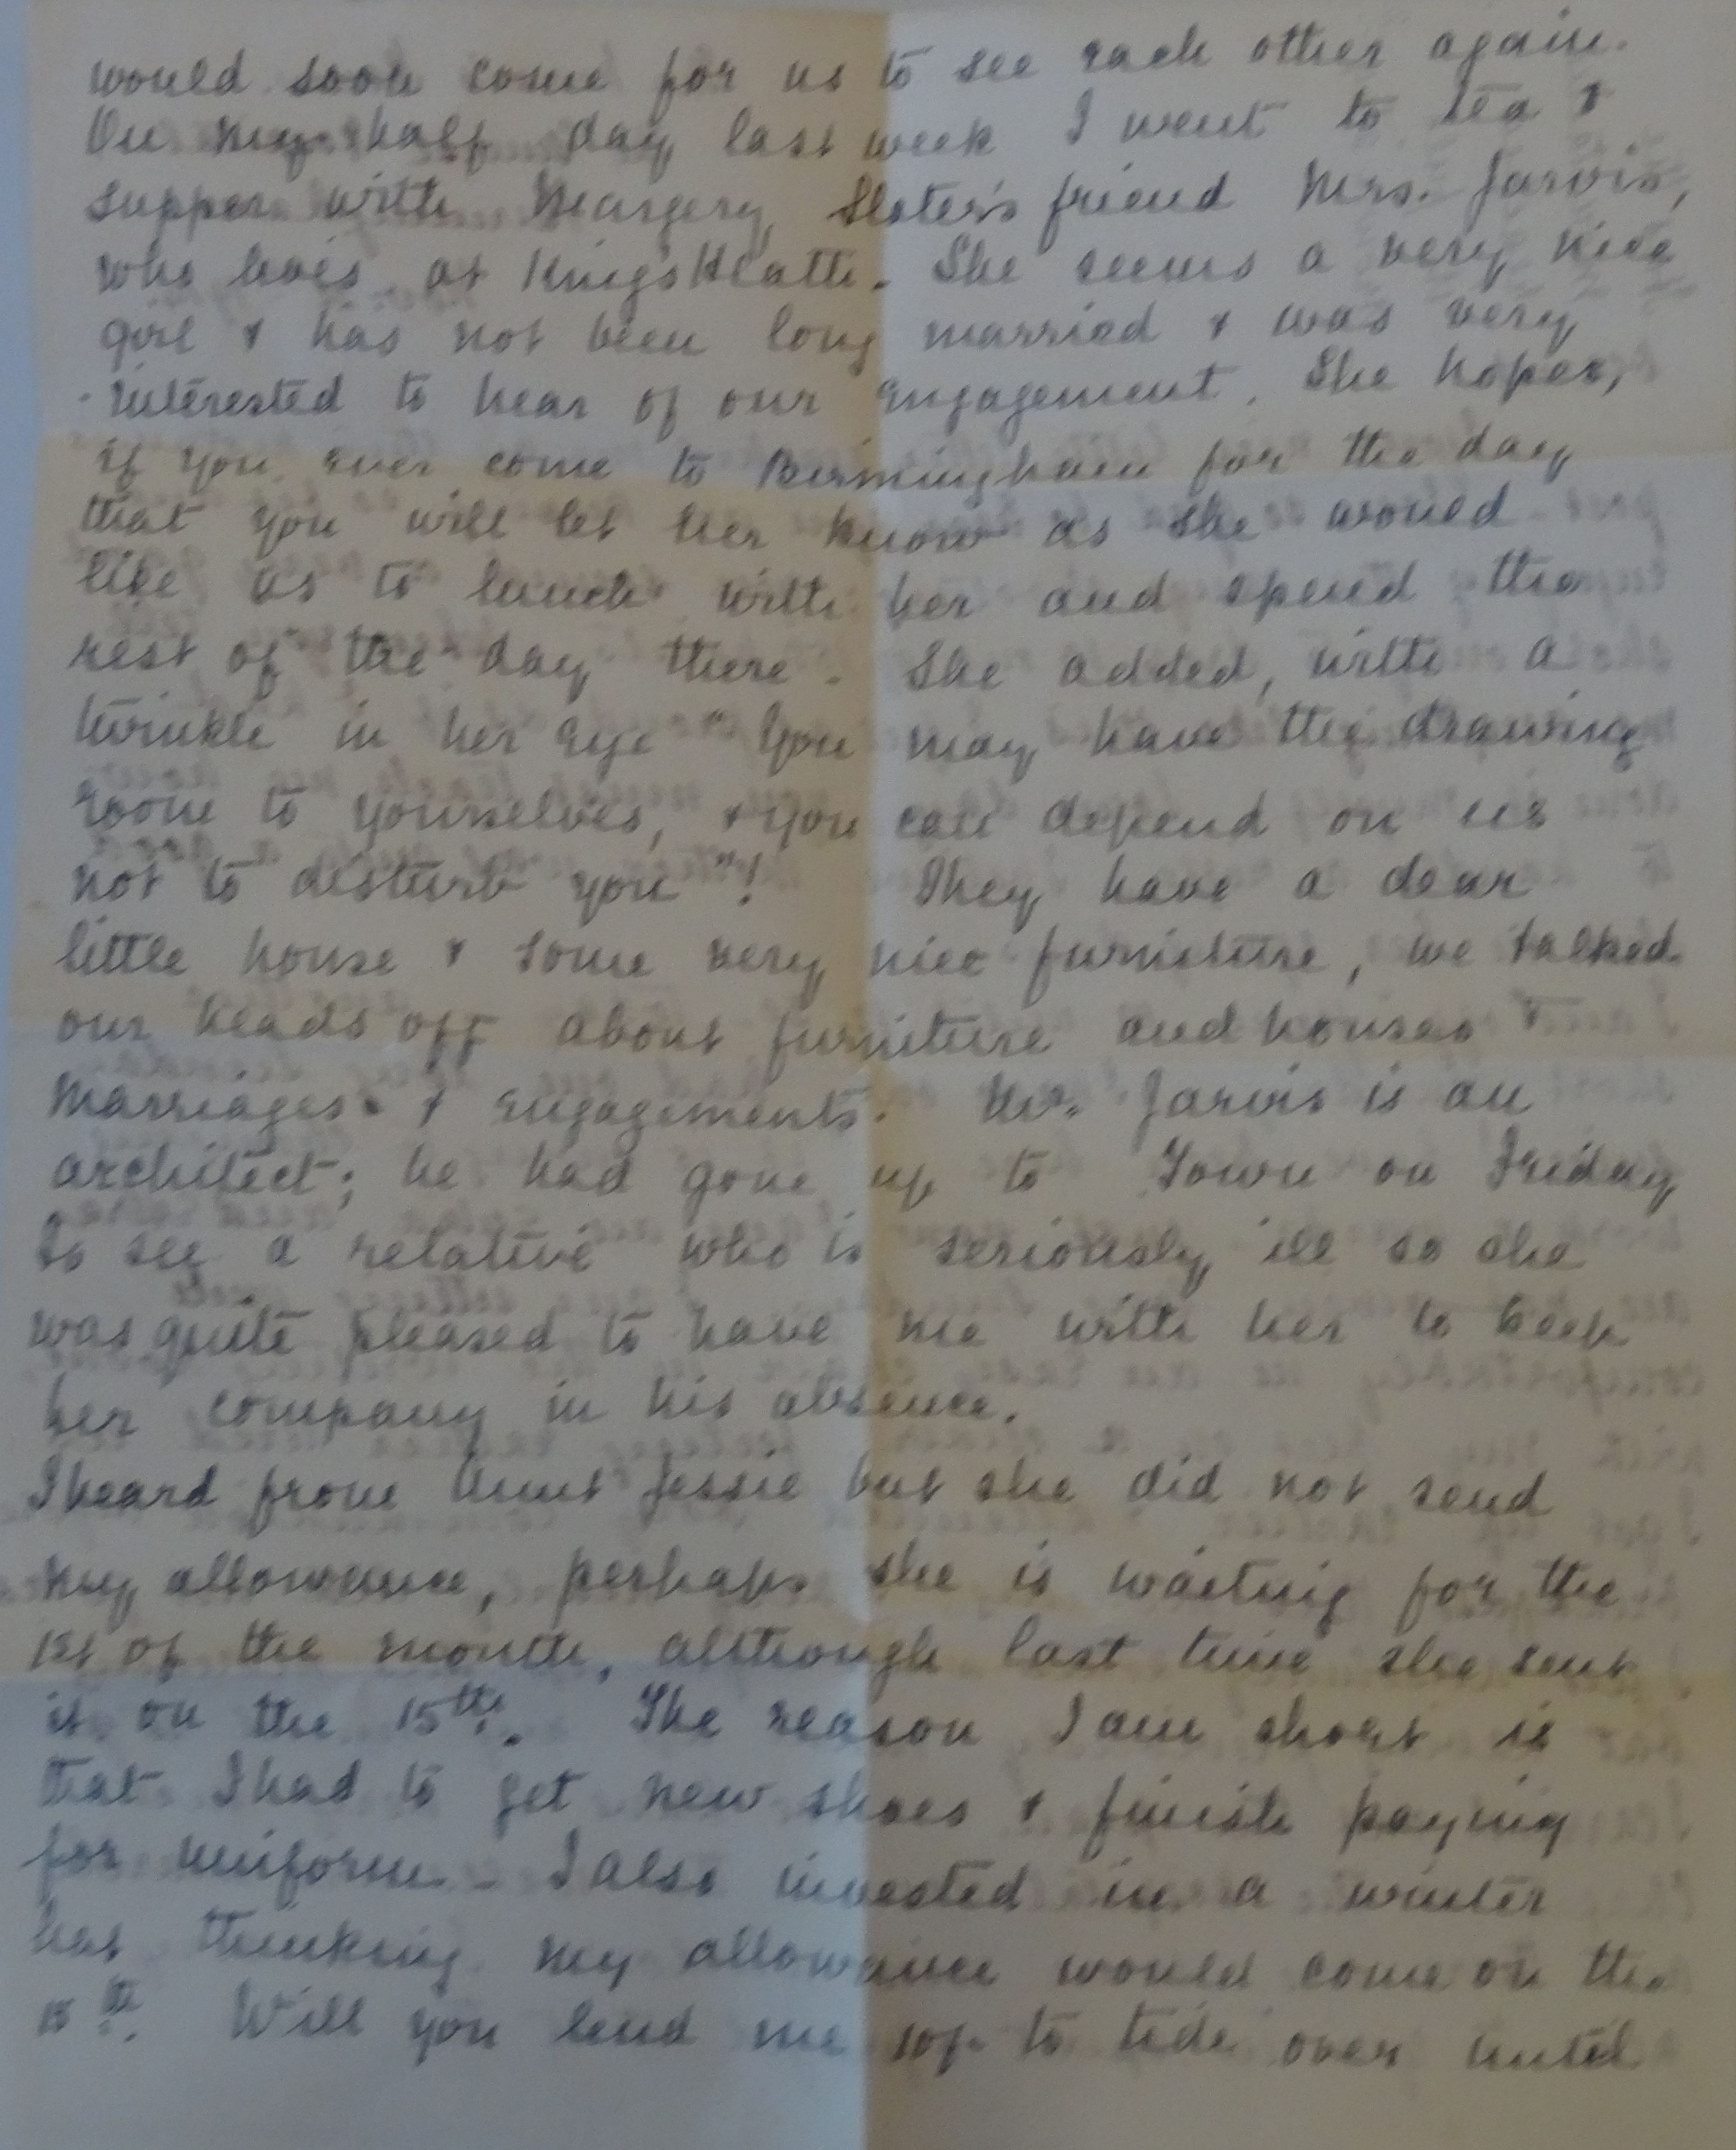 would soon come for us to see each other again.
On my half day last week I went to tea &
supper with Margery, Slater's friend Mrs. Jarvis,
who lives at Kings Heath. She seems a very nice
girl & has not been long married & was very
interested to hear of our engagement. She hopes,
if you ever come to Birmingham for the day
that you will let her know as she would
like us to lunch with her and spend the
rest of the day there. She added, with a
twinkle in her eye "You may have the drawing
room to yourselves, & you can depend on us
not to disturb you"! They have a dear
little house & some very nice furniture, we talked
our heads off about furniture and houses &
marriages & engagements. Mr. Jarvis is an
architect; he had gone up to Town on Friday
to see a relative who is seriously ill so she
was quite pleased to have me with her to keep
her company in his absence.
I heard from Aunt Jessie but she did not send
my allowance, perhaps she is waiting for the
1st of the month, although last time she sent
it on the 15th. The reason I am short is
that I had to get new shoes & finish paying
for uniform. I also invested in a winter
hat thinking my allowance would come on the
15th. Will you lend me 10/- to tide over until